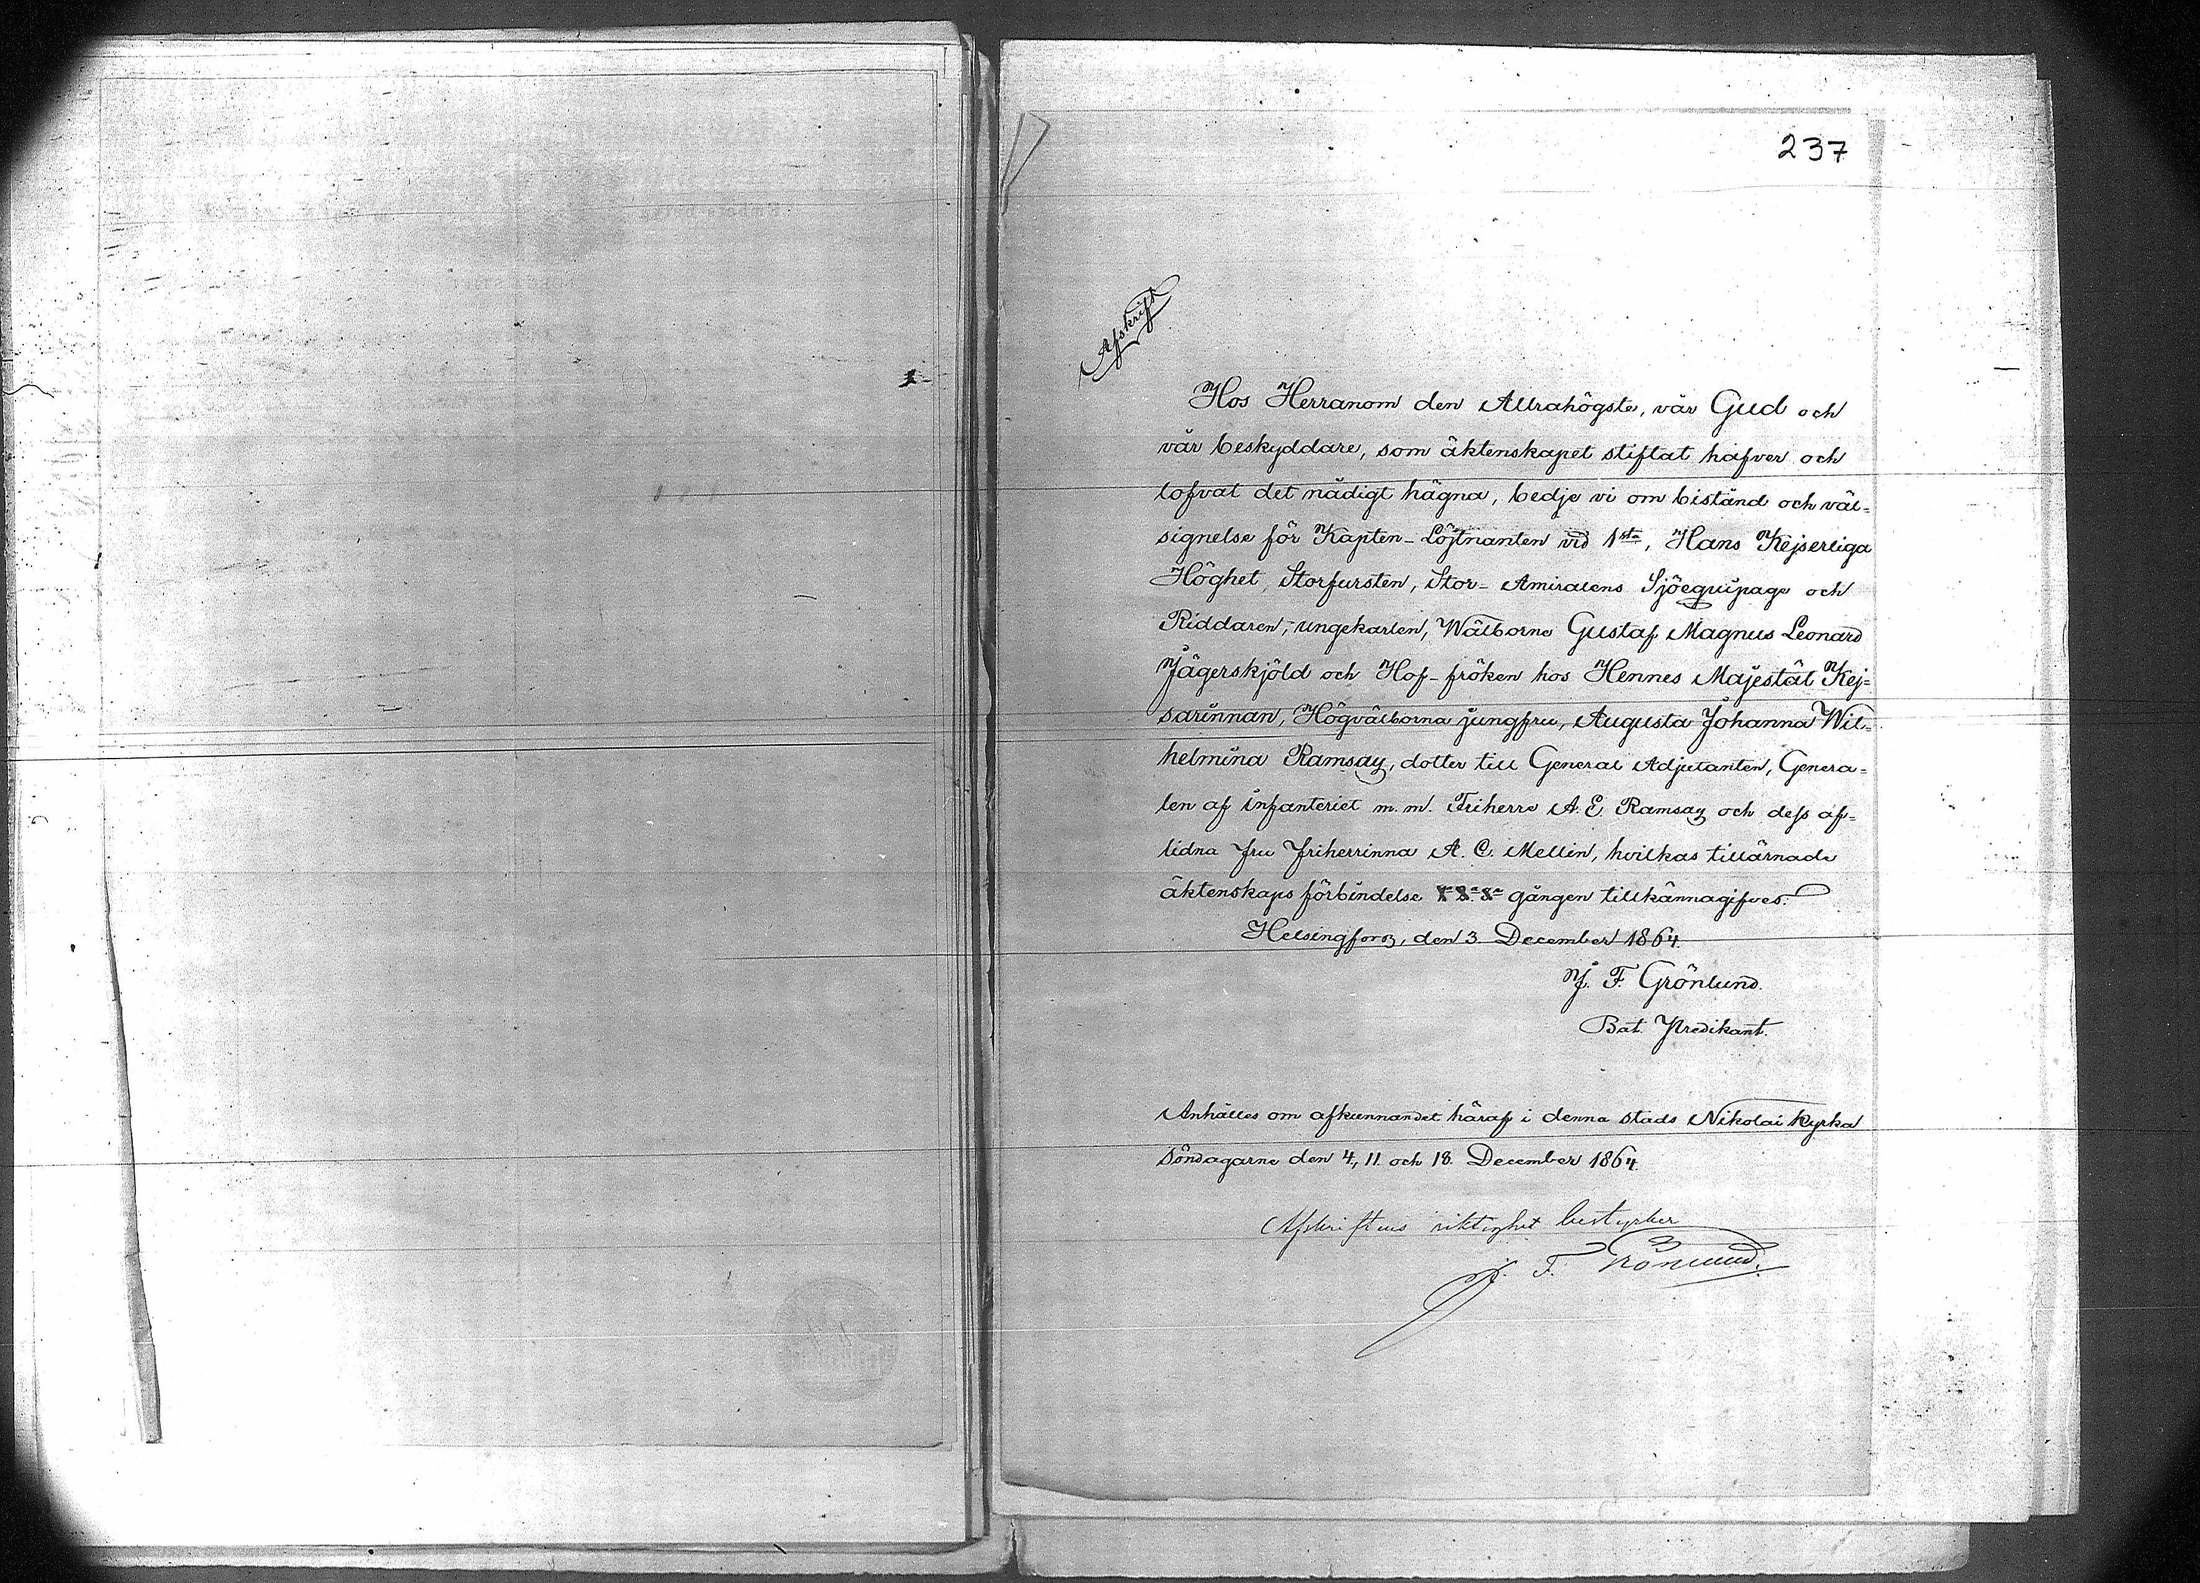 237
Afskrift
Hos Herranom den Allrahögste, vår Gud och
vår beskyddare, som äktenskapet stiftat hafver och
lofvat det nådigt hägna, bedje vi om bistånd och väl-
signelse för Kapten-Löjtnanten vid 1sta, Hans Kejserliga
Höghet, Storfursten, Stor-Amiralens Sjöequipage och
Riddaren, ungekarlen, Wälborne Gustaf Magnus Leonard
Jägerskjöld och Hof-fröken hos Hennes Majestät Kej-
sarinnan, Högvälborna jungfru, Augusta Johanna Wil-
helmina Ramsay, dotter till General Adjutanten, Genera-
len af infanteriet m.m. Friherre A. E. Ramsay och dess af-
lidna fru friherrinna A. C. Mellin, hvilkas tillärnade
äktenskaps förbindelse gången tillkännagifves.
Helsingfors, den 3. December 1864.
J. F. Grönlund.
Bat. Predikant.
Anhålles om afkunnandet häraf i denna stads Nikolai kyrka
Söndagarne den 4, 11. och 18. December 1864.
Afskriftens riktighet bestyrker
J. F. Grönlund.